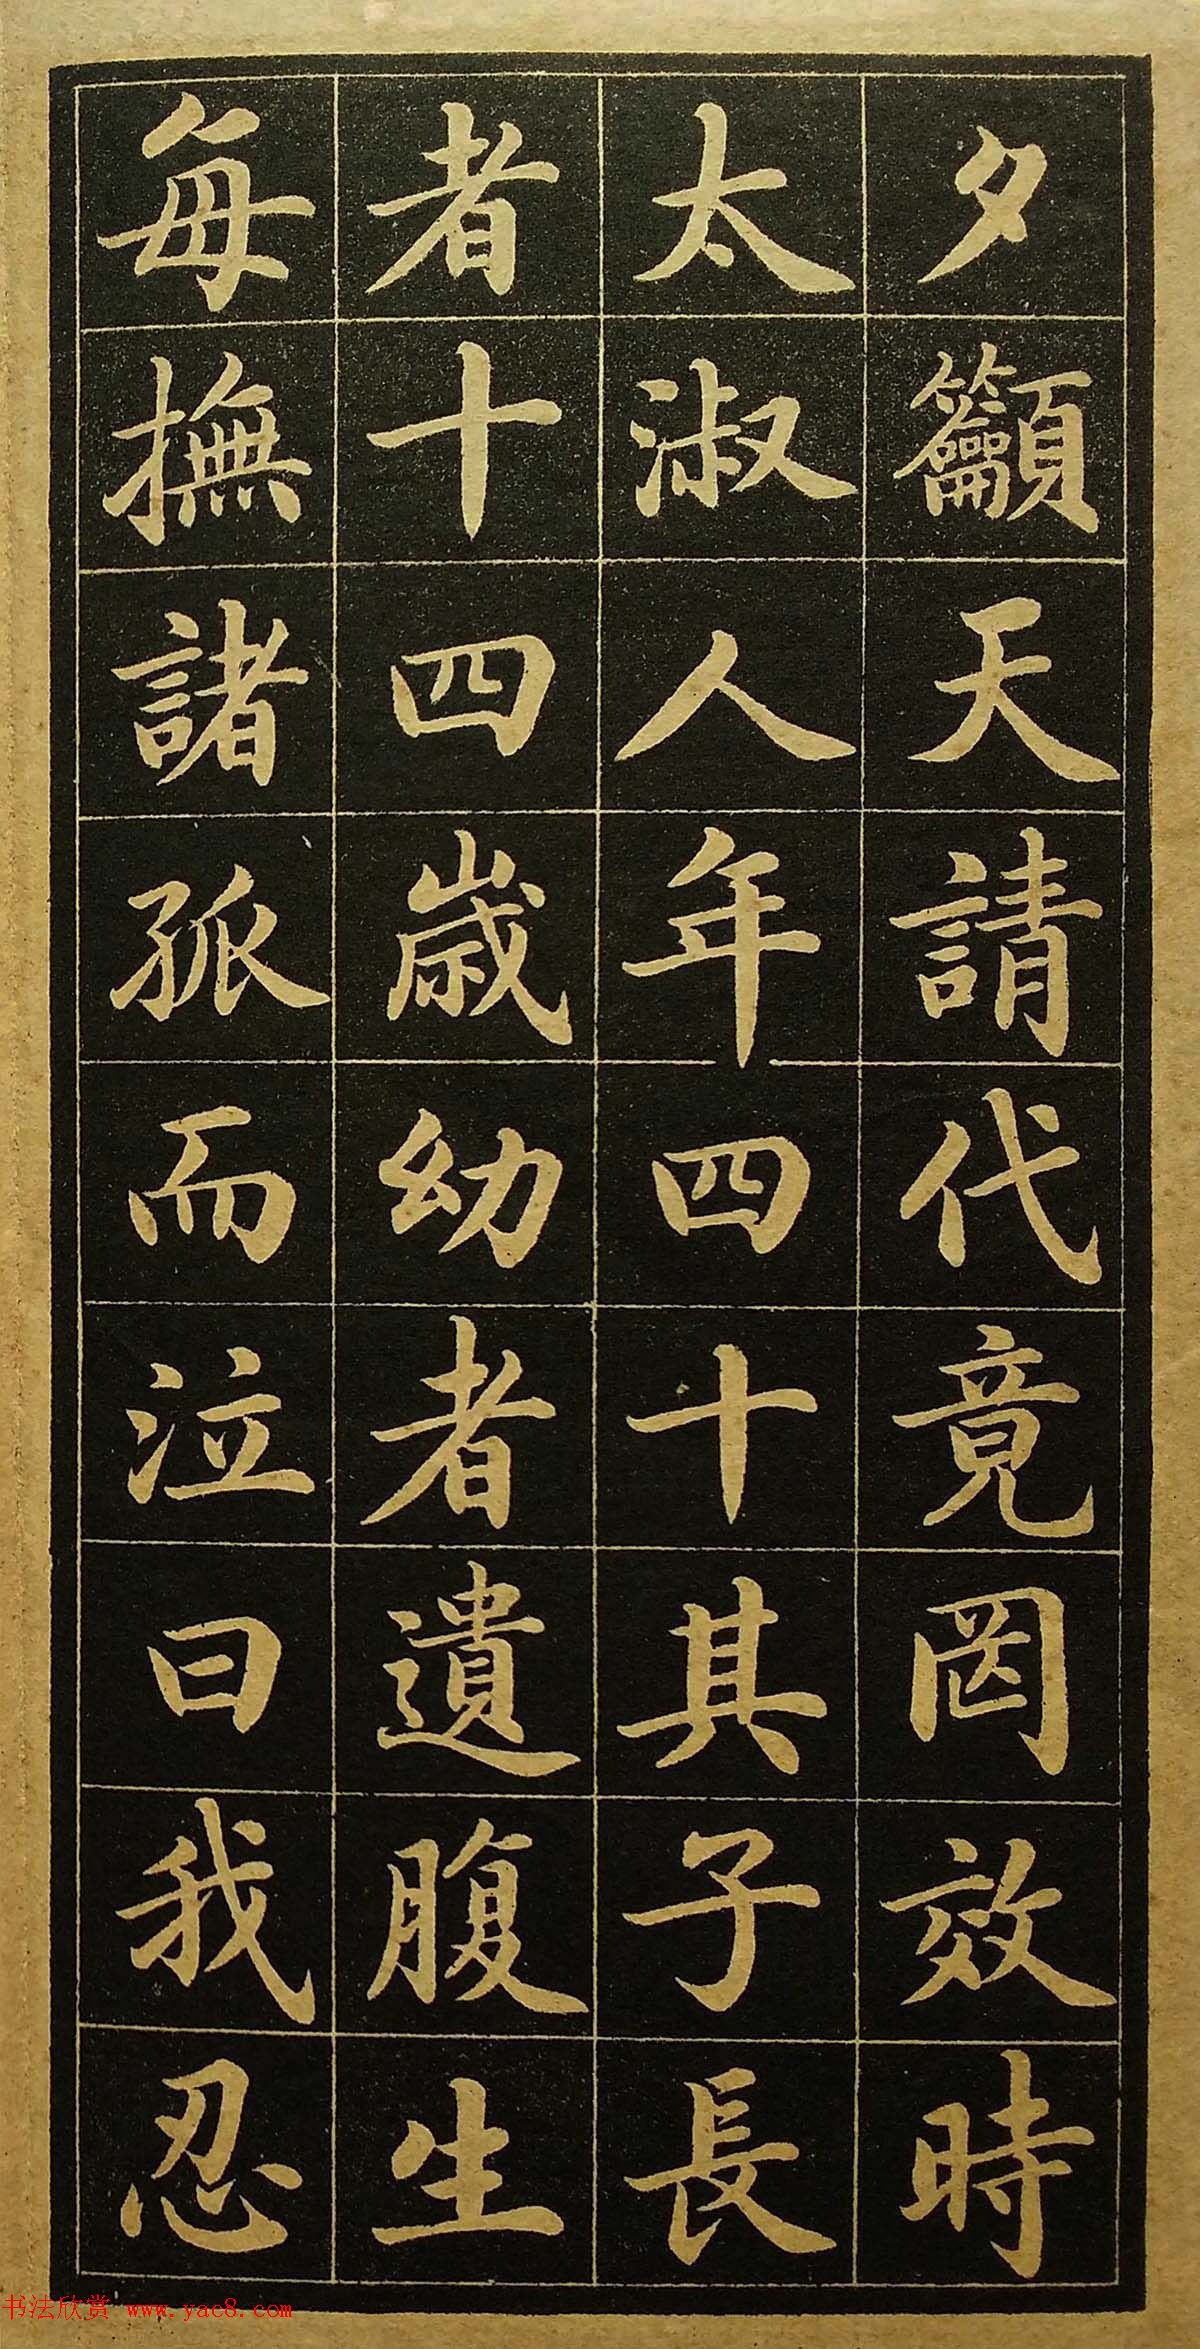 夕籲天請代竟罔效時
太淑人年四十其子長
者十四歲幼者遺腹生
每撫諸孤而泣曰我忍
书法欣赏 www.yac8.com